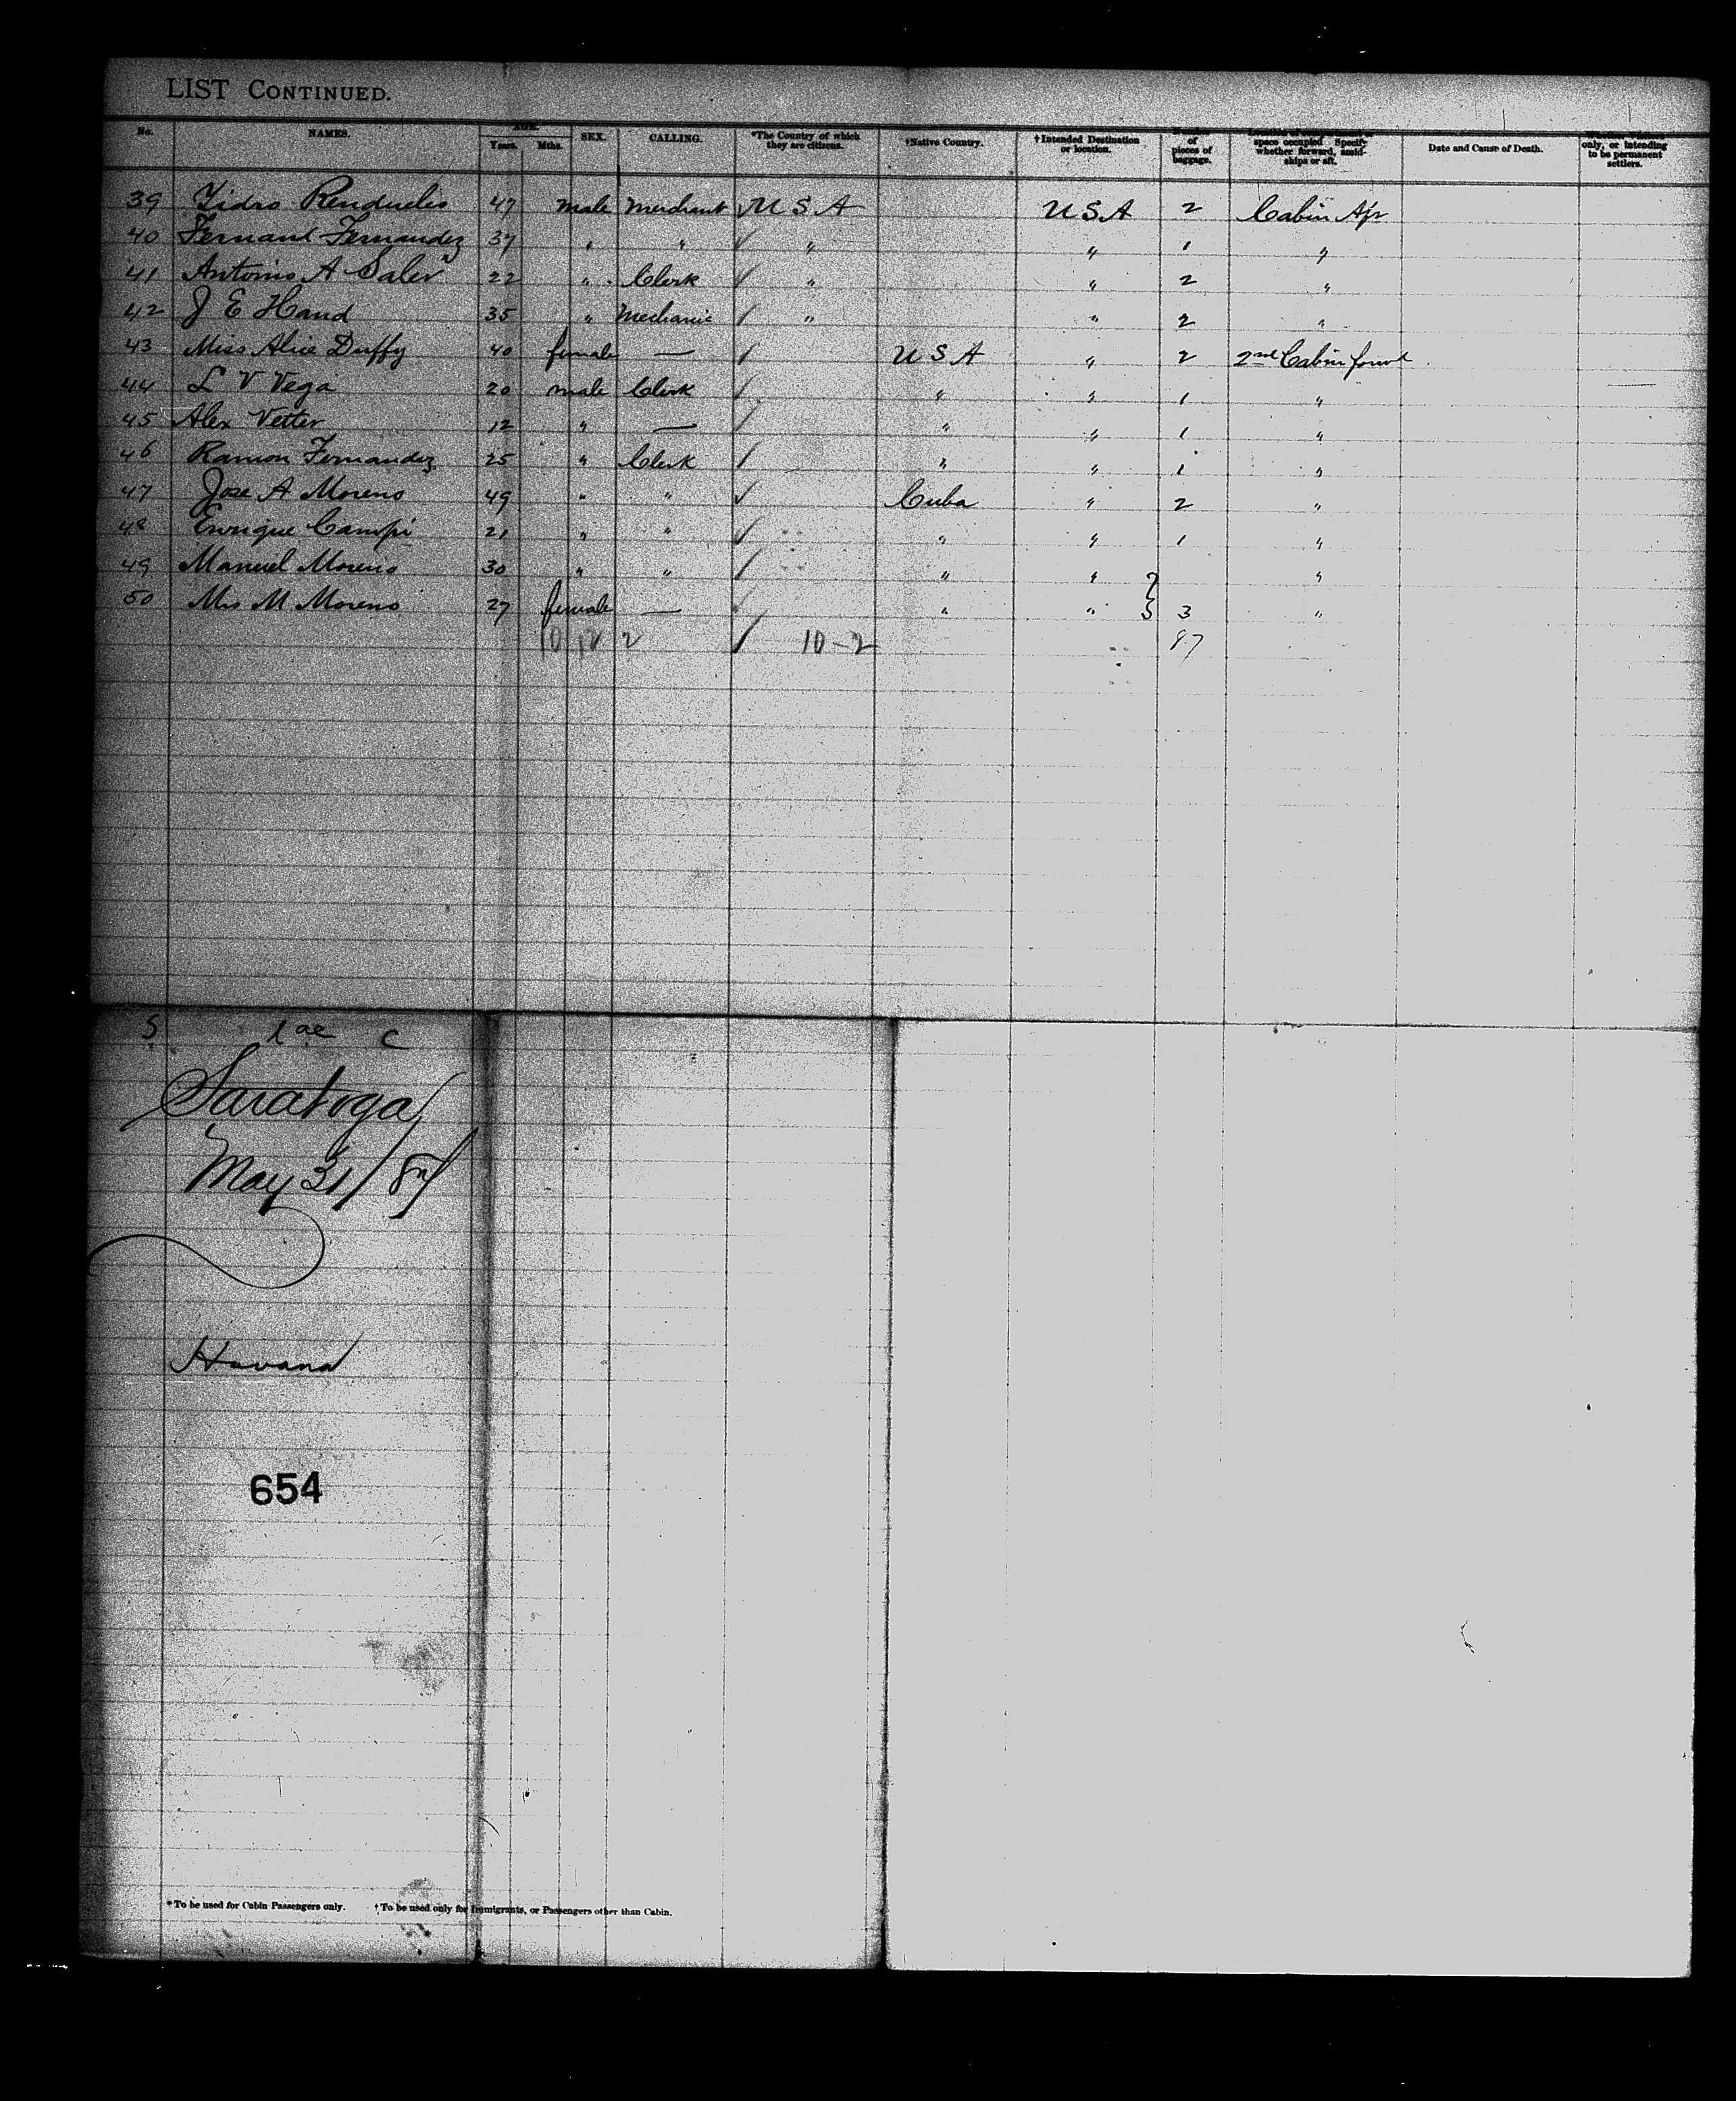 LIST CONTINUED.
No. NAMES. AGE. Years. Mths. SEX. CALLING. *The Country of which they are citizens. †Native Country. †Intended Destination or location. Number of pieces of baggage. space occupied Specify whether forward, amid-ships or aft. Date and Cause of Death. only, or intending to be permanent settlers.
39 Ysidro Rendueles 47 male Merchant U S A U S A 2 Cabin Aft
40 Fernand Fernandez 37 " " " " 1 "
41 Antonio A 22 " Clerk " " 2 "
42 J E Hand 35 " Mechanic " " 2 "
43 Miss Alice Duffy 40 female — U S A " 2 2nd Cabin forwd
44 L V Vega 20 male Clerk " " 1 "
45 Alex Vetter 12 " — " " 1 "
46 Ramon Fernandez 25 " Clerk " " 1 "
47 Jose A Moreno 49 " " Cuba " 2 "
48 Enrique Campi 21 " " " " 1 "
49 Manuel Moreno 30 " " " " "
50 Mrs M Moreno 27 female — " " 3 "
10 12 2 10-2 97
S C
Saratoga
May 31/87
Havana
654
*To be used for Cabin Passengers only. †To be used only for Immigrants, or Passengers other than Cabin.